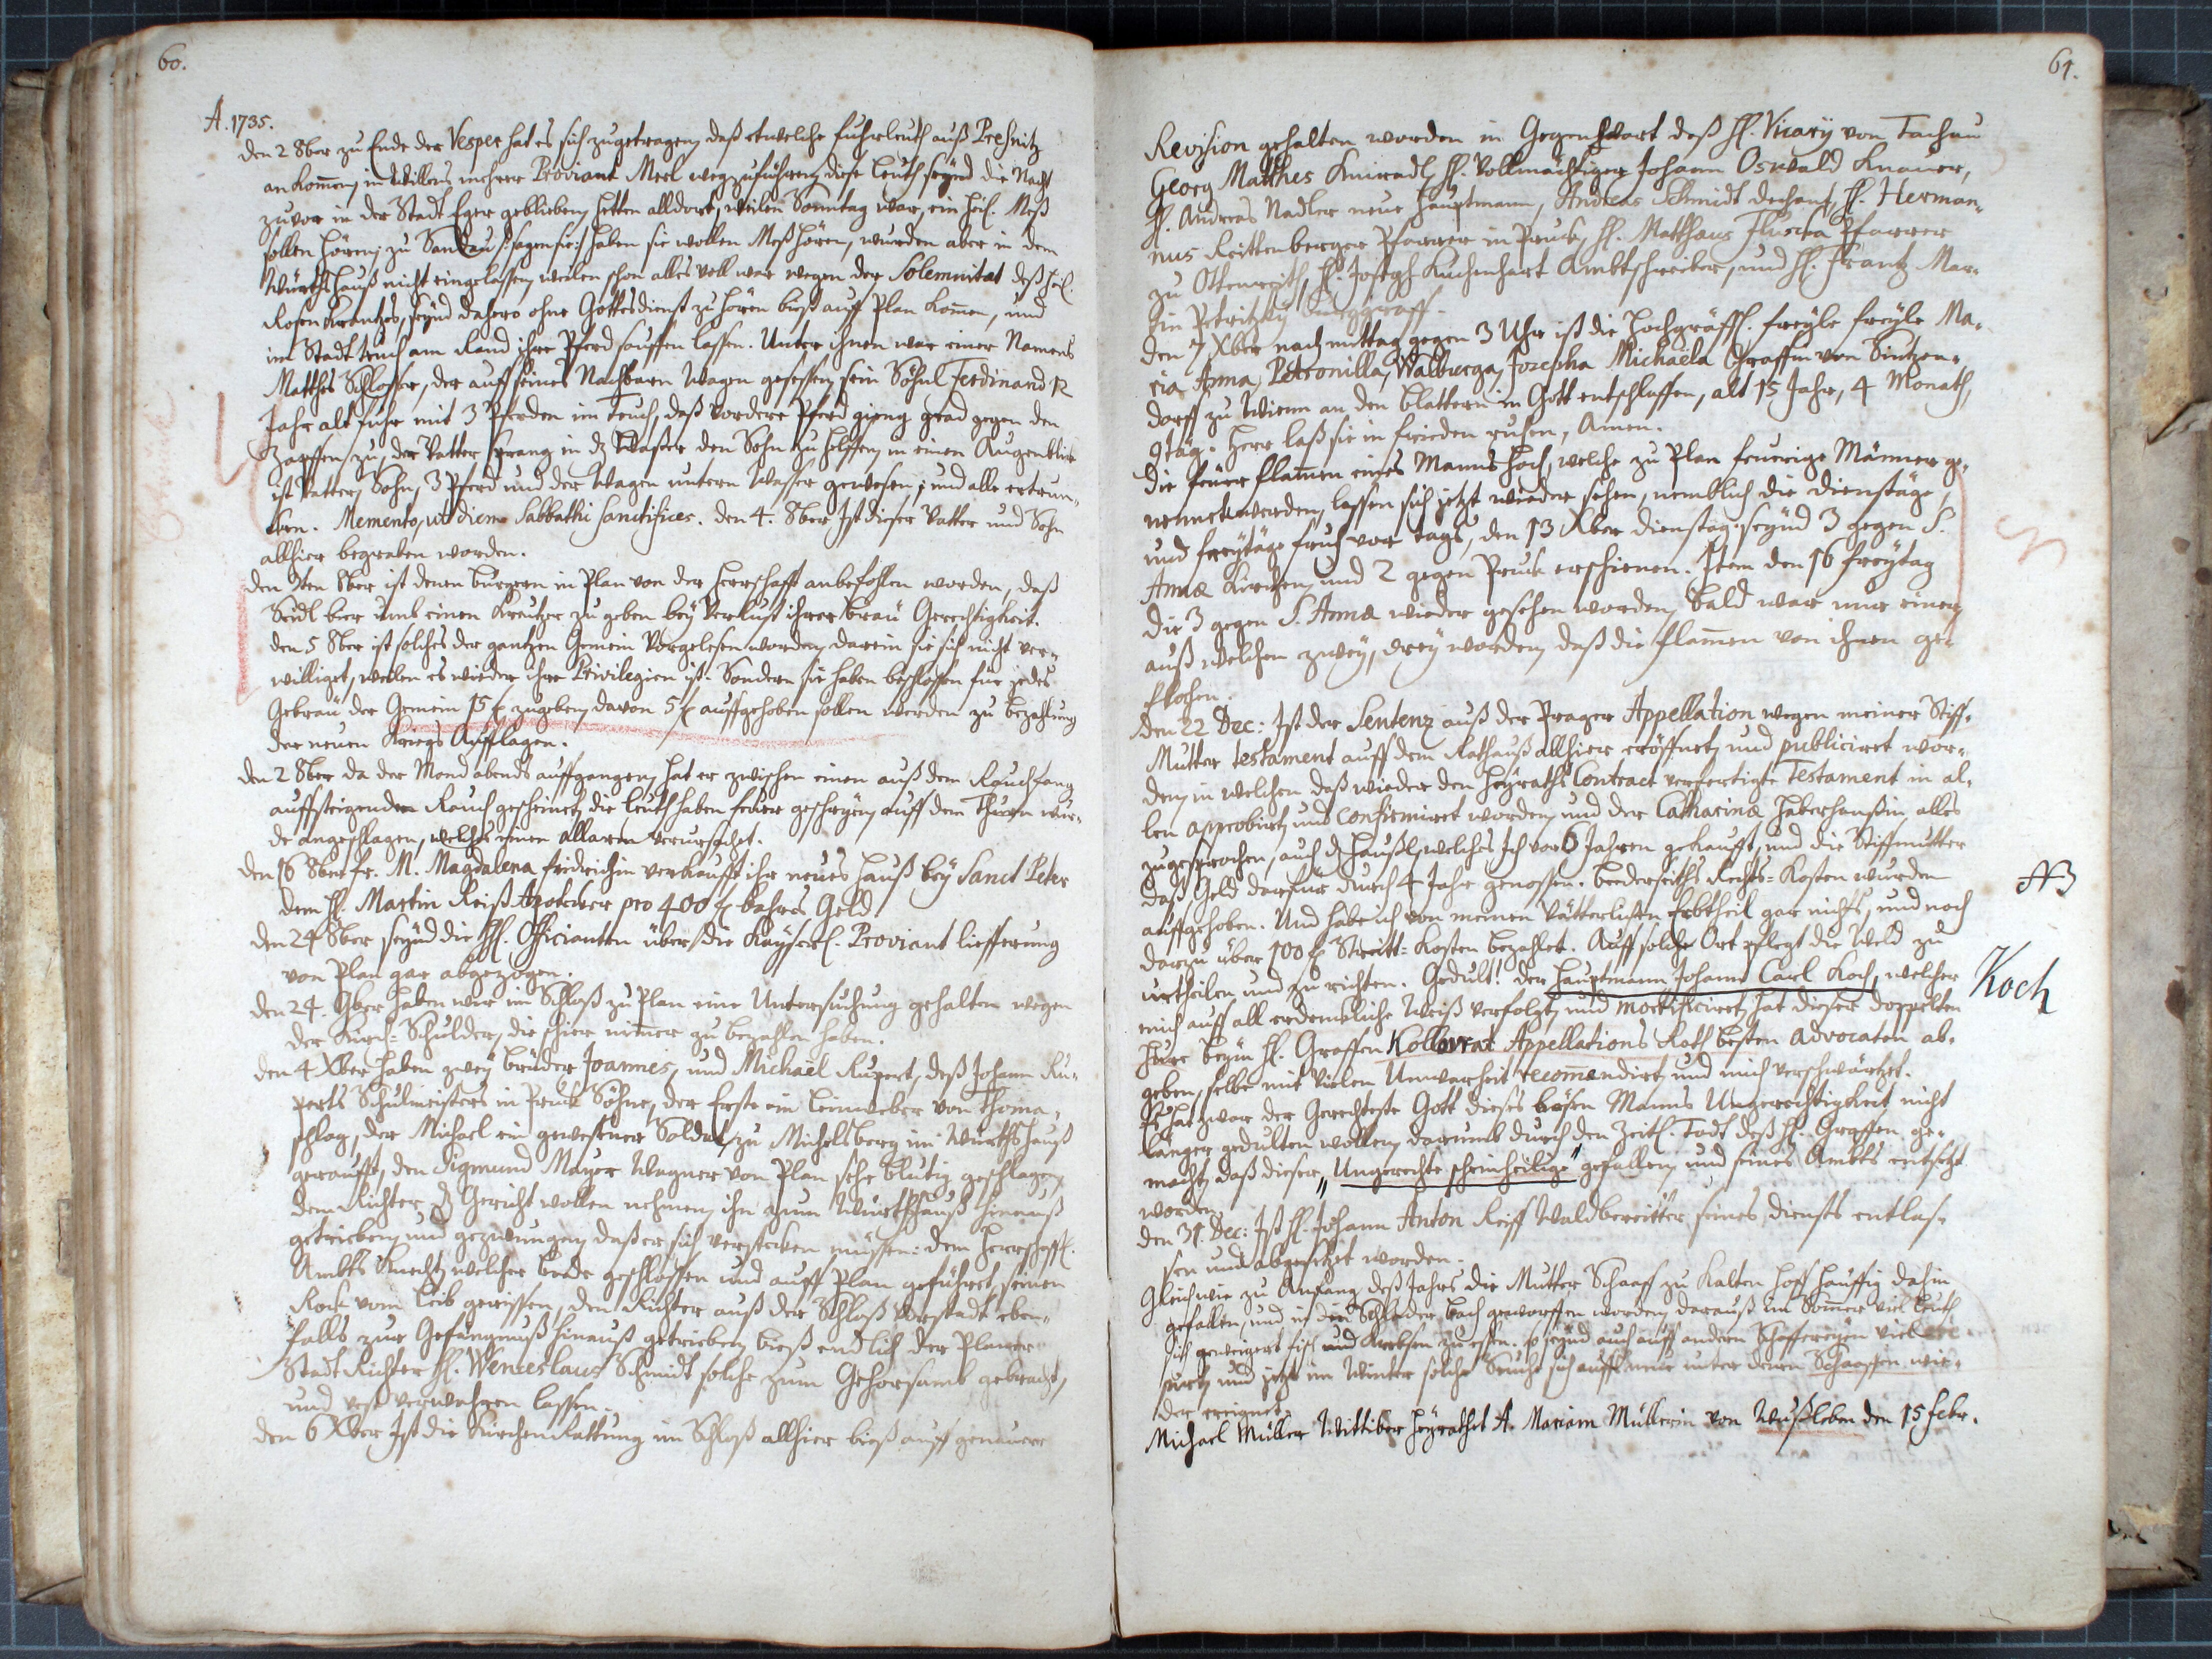 60.
A. 1735.
den 2 8ber zu Ende der Vesper hat es sich zugetragen, daß etweliche fuhrleuth auß Preßnitz
ankom̄en, in Willens mehrer Proviant Meel wegzuführen, diese Leuth seynd die Nacht
zuvor in der Stadt Eger geblieben, hetten alldort, weilen Sonntag war, ein heil. Meß
sollen hören; zu Sandau /: sagen sie :/ haben sie wollen Meß hören, wurden aber in dem
Würthshauß nicht eingelassen, weilen schon alles voll war wegen der Solemnitat deß heil.
Rosen Krantzes, seynd dahero ohne Gottesdienst zu hören bieß auff Plan kom̄en, und
im Stadt teuch am Rand ihre Pferd sauffen lassen. Unter ihnen war einer Namens
Matthes Schlosser, der auff seines Nachbarn Wagen gesessen, sein Söhnl Ferdinand 12
Jahr alt fuhr mit 3 Pferden im Teuch, daß vordere Pferd gieng grad gegen den
Zapffen zu, der Vatter sprang in dz Wasser den Sohn zu helffen, in einen Augenblick
ist Vatter, Sohn, 3 Pferd und der Wagen untern Wasser gewesen, und alle ertrun-
cken. Memento, ut diem Sabbathi sanctifices. den 4. 8ber Ist dieser Vatter und Sohn
allhier begraben worden.
den 8ber ist denen bürgern in Plan von der Herrschafft anbefohlen worden, daß
Seidl bier umb einen Kreutzer zu geben bey Verlust ihrer bräu Gerechtigkeit.
den 5 8ber ist solches der gantzen Gemein vorgelesen worden, darein sie sich nicht ver-
williget, weilen es wieder ihre Privilegien ist. Sondern sie haben beschlossen für jedes
Gebräu der Gemein 15 f zugeben, davon 5 f auffgehoben sollen werden zu bezahlung
der neuen Kriegs Aufflagen.
den 2 8ber da der Mond abends auffgangen, hat er zwischen einen auß dem Rauchfang
auffsteigenden Rauch gescheinet, die leuth haben feuer geschryen, auff dem Thurn wur-
de angeschlagen, welches einen allarm verursachet.
den 16 8ber fr. M. Magdalena fridrichin verkaufft ihr neues Hauß bey Sanct Peter
dem H. Martin Reiß Apotecker pro 400 f bahres Geld.
den 24 8ber seynd die HH. Officianten über die Kayserl. Proviant lieferung
von Plan gar abgezogen.
den 24. 9ber haben wir im Schloß zu Plan eine Untersuchung gehalten wegen
der Kirch-Schulden, die schier nim̄er zu bezahlen haben.
den 4 Xber haben zwey brüder Joannes, und Michaël Rupert, deß Johann Ru-
perts Schulmeisters in Pruck Söhne, der Erste ein Leinweber von Thoma-
schlag, der Michael ein gewesener Soldat, zu Michelsberg im Würthshauß
gerauft, den Sigmund Mayer Wagner von Plan sehr blutig geschlagen,
dem Richter dz Gericht wollen nehmen, ihn zum Würthshauß hinauß
getrieben, und gezwungen, daß er sich verstecken müssen: dem herrschafftl.
Ambts Knecht, welcher beede geschlossen und auff Plan geführet, seinen
Rock vom Leib gerissen, den Richter auß der Schloß Vorstadt eben-
falls zur Gefängnuß hinauß getrieben, bieß endlich der Planer
Stadt Richter H. Wenceslaus Schmidt solche zum Gehorsamb gebracht,
und verwahren lassen.
den 6 Xber Ist die Kirchen Raittung im Schloß allhier bieß auff genauere
61.
Revision gehalten worden in Gegenwart deß H. Vicarij von Tachau
Georg Matthes Knieradl, H. Vollmächtigen Johann Oswald Knauer,
H. Andreas Nadler neue Hauptmann, Andreas Schmidt dechant, H. Herman-
nus Reittenberger Pfarrer in Pruck, H. Matthaus Fluscka Pfarrer
zu Ottenreith, H. Joseph Kuchenhart Ambtschreiber, und H. Frantz Mar-
tin Petritzky burggraff.
den 7 Xber nach mittag gegen 3 Uhr ist die Hochgräffl. freyle freyle Ma-
ria Anna, Petronilla, Walburga, Josepha Michaëla Graffin von Sintzen-
dorff zu Wienn an den blattern in Gott entschlaffen, alt 15 Jahr, 4 Monath,
9täg. Herr laß sie in frieden ruhen, Amen.
die feuer flam̄en eines Manns hoch, welche zu Plan feuerige Männer ge-
nennet werden, lassen sich jetzt wieder sehen, nemblich die dienstäge
und freytäge fruh vor tags, den 13 Xber dienstag seynd 3 gegen S.
Annæ Kirchen, und 2 gegen Pruck erschienen. Item den 16 freytag
die 3 gegen S. Anna wieder gesehen worden, bald war nur einer
auß welchen zwey, drey worden, daß die flam̄en von ihnen ge-
flohen.
den 22 Dec: Ist der Sentenz auß der Prager Appellation wegen meiner Stiff-
Mutter testament auff dem Rathauß allhier eröffnet, und publiciret wor-
den, in welchen daß wieder den Heyraths Contract verfertigte Testament in al-
len approbirt, und confirmiret worden, und der Catharinæ Haberhanßin alles
zugesprochen, auch dz Häußl, welches Ich vor 6 Jahren gekaufft, und die Stiffmutter
daß Geld darfür durch 4 Jahr genossen. beederseiths Rechts-Kosten wurden
auffgehoben. Und habe ich von meinen Vätterlichen Erbtheil gar nichts, und noch
darzu über 100 f Streitt-Kosten bezahlet. Auff solche Ort pflegt die Weld zu
urtheilen, und zu richten. Gedult! der Hauptmann Johann Carl Koch, welcher
mich auff all erdenckliche Weiß verfolgt, und mortificiret, hat dieser doppelten
Hure beym H. Graffen Kollowrat Appellations Rath besten Advocaten ab-
geben, selbe mit vielen Unwarheit recom̄endirt, und mich verschwärtzet.
Es hat zwar der Gerechteste Gott dieses bösen Manns Ungerechtigkeit nicht
länger gedulten wollen, darumb durch den Zeitl. Todt deß H. Graffen ge-
macht, daß dieser „Ungerechte scheinheilige" gefallen, und seines Ambts entsetzt
worden.
den 31. Dec: Ist H. Johann Anton Reiff Waldbereitter seines diensts entlas-
sen und abgesetzet worden.
Gleich wie zu Anfang deß Jahrs die Mutter Schaaff zu Kalten Hoff häuffig dahin
gefallen, und in den Schlader bach geworffen worden, darauß im Som̄er viel leuth
sich geweigert fisch und Krebsen zu essen. so seynd auch auff andern Schäffereyen viel
und jetzt im Winter solche Seucht sich auffs neue unter denen Schaaffen wie-
der ereignet.
Michael Müller Wittiber Heyrathet A. Mariam Müllerin von Wußleben den 15 febr.
NB
Koch